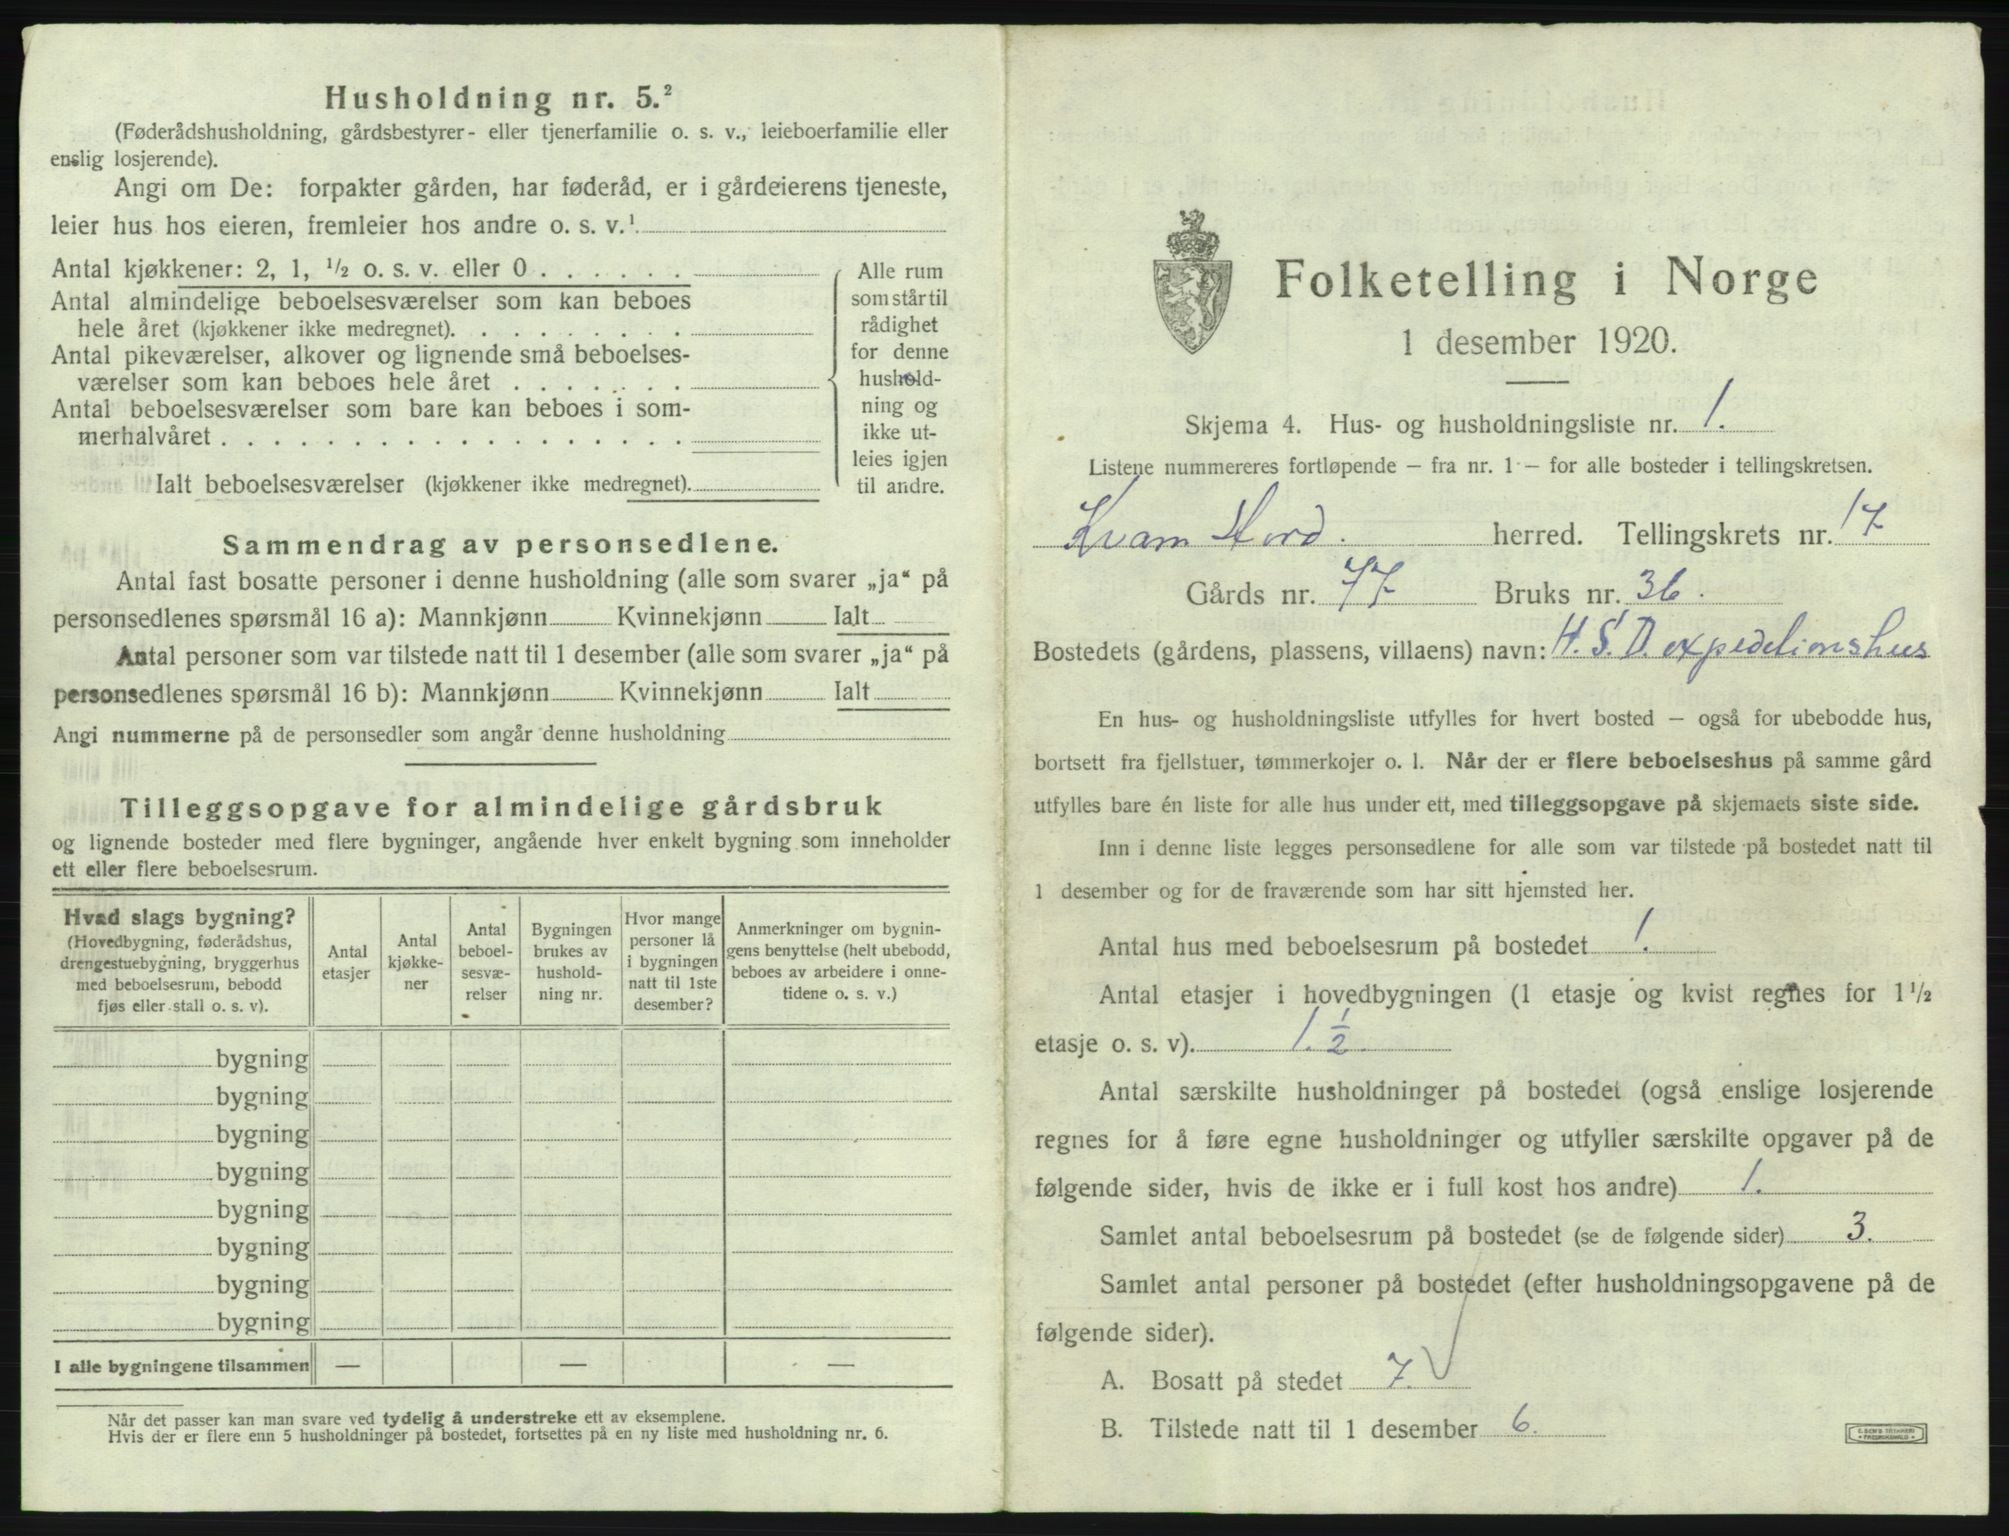 Husholdning nr. 5.²
(Føderådshusholdning, gårdsbestyrer- eller tjenerfamilie o. s. v., leieboerfamilie eller
enslig losjerende).
Angi om De: forpakter gården, har føderåd, er i gårdeierens tjeneste,
leier hus hos eieren, fremleier hos andre o. s. v.¹
Antal kjøkkener: 2, 1, ½ o. s. v. eller 0 . . . . . .
Antal almindelige beboelsesværelser som kan beboes
hele året (kjøkkener ikke medregnet). . . . . . . . .
Antal pikeværelser, alkover og lignende små beboelses-
værelser som kan beboes hele året . . . . . . .
Antal beboelsesværelser som bare kan beboes i som-
merhalvåret . . . . . . . . . . . . . . . . . .
Ialt beboelsesværelser (kjøkkener ikke medregnet).
Alle rum
som står til
rådighet
for denne
hushold-
ning og
ikke ut-
leies igjen
til andre.
Sammendrag av personsedlene.
Antal fast bosatte personer i denne husholdning (alle som svarer „ja“ på
personsedlenes spørsmål 16 a): Mannkjønn Kvinnekjønn Ialt
Antal personer som var tilstede natt til 1 desember (alle som svarer „ja“ på
personsedlenes spørsmål 16 b): Mannkjønn Kvinnekjønn Ialt
Angi nummerne på de personsedler som angår denne husholdning
Tilleggsopgave for almindelige gårdsbruk
og lignende bosteder med flere bygninger, angående hver enkelt bygning som inneholder
ett eller flere beboelsesrum.
Hvad slags bygning?
(Hovedbygning, føderådshus,
drengestuebygning, bryggerhus
med beboelsesrum, bebodd
fjøs eller stall o. s. v).
Antal
etasjer
Antal
kjøkke-
ner
Antal
beboel-
sesvæ-
relser
Bygningen
brukes av
hushold-
ning nr.
Hvor mange
personer lå
i bygningen
natt til 1ste
desember?
Anmerkninger om bygnin-
gens benyttelse (helt ubebodd,
beboes av arbeidere i onne-
tidene o. s. v.)
bygning
bygning
bygning
bygning
bygning
bygning
bygning
bygning
I alle bygningene tilsammen — — —
Når det passer kan man svare ved tydelig å understreke ett av eksemplene.
Hvis der er flere enn 5 husholdninger på bostedet, fortsettes på en ny liste med husholdning nr. 6.
Folketelling i Norge
1 desember 1920.
Skjema 4. Hus- og husholdningsliste nr. 1.
Listene nummereres fortløpende — fra nr. 1 — for alle bosteder i tellingskretsen.
Kvam Hord. herred. Tellingskrets nr. 17
Gårds nr. 77 Bruks nr. 36.
Bostedets (gårdens, plassens, villaens) navn: H. S. D. expeditionshus
En hus- og husholdningsliste utfylles for hvert bosted — også for ubebodde hus,
bortsett fra fjellstuer, tømmerkojer o. l. Når der er flere beboelseshus på samme gård
utfylles bare én liste for alle hus under ett, med tilleggsopgave på skjemaets siste side.
Inn i denne liste legges personsedlene for alle som var tilstede på bostedet natt til
1 desember og for de fraværende som har sitt hjemsted her.
Antal hus med beboelsesrum på bostedet 1.
Antal etasjer i hovedbygningen (1 etasje og kvist regnes for 1 ½
etasje o. s. v). 1. ½
Antal særskilte husholdninger på bostedet (også enslige losjerende
regnes for å føre egne husholdninger og utfyller særskilte opgaver på de
følgende sider, hvis de ikke er i full kost hos andre) 1.
Samlet antal beboelsesrum på bostedet (se de følgende sider) 3.
Samlet antal personer på bostedet (efter husholdningsopgavene på de
følgende sider).
A. Bosatt på stedet 7.
B. Tilstede natt til 1 desember 6.